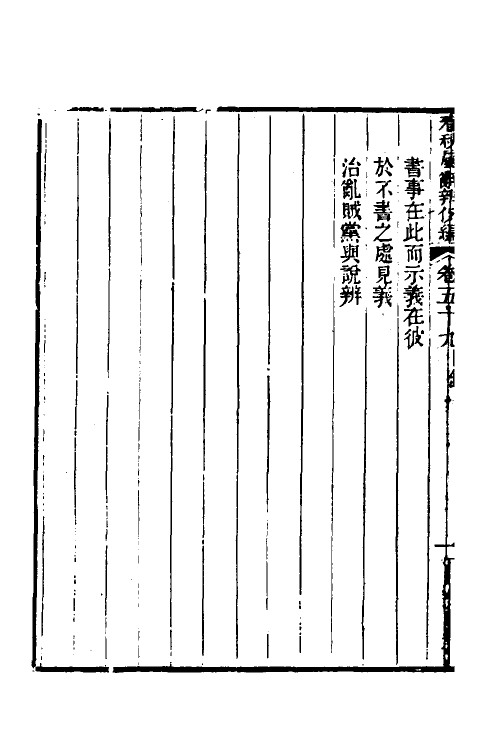 春秋屬辭辨例編 卷五十九
書事在此而示義在彼
於不書之處見義
治亂賊黨與說辨